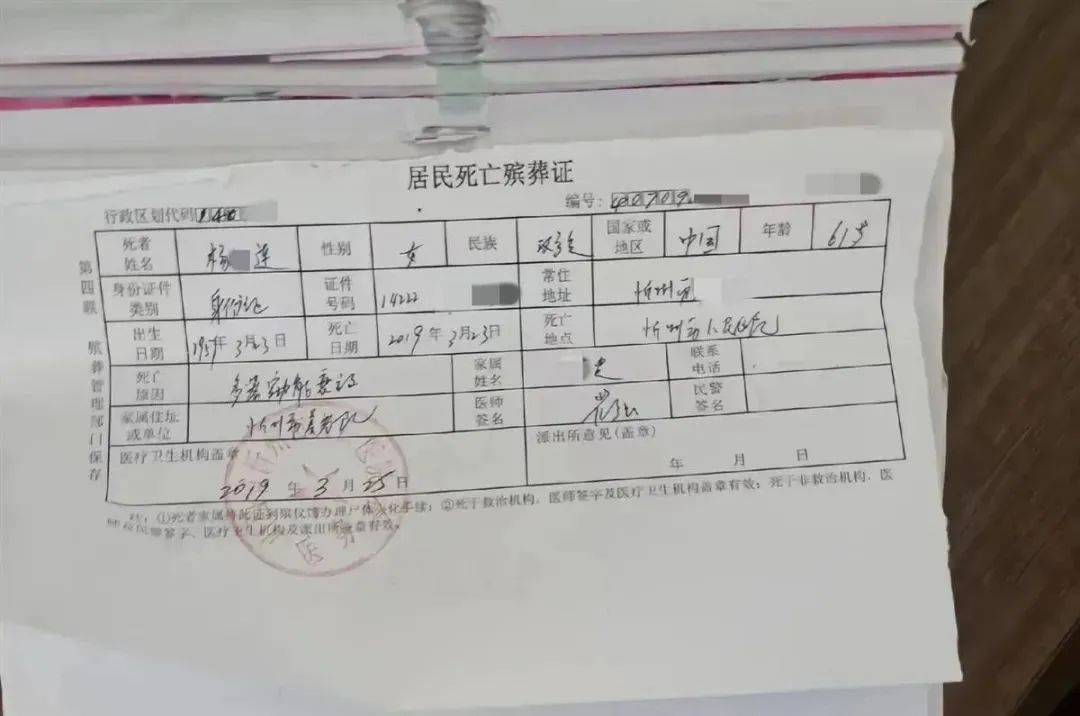 居民死亡殡葬证
行政区划代码 编号:
死者姓名 杨 连 性别 女 民族 汉族 国家或地区 中国 年龄 61岁
身份证件类别 身份证 证件号码 14222 常住地址 忻州市
出生日期 1957年3月23日 死亡日期 2019年3月23日 死亡地点 忻州市人民医院
死亡原因 多器官功能衰竭 家属姓名 联系电话
家属住址或单位 忻州市 医师签名 民警签名
医疗卫生机构盖章 派出所意见(盖章)
2019年3月25日 年 月 日
注:①死者家属持此证到殡仪馆办理尸体火化手续;②死于救治机构,医师签字及医疗卫生机构盖章有效;死于非救治机构,医
师及民警签字、医疗卫生机构及派出所盖章有效。
第四联 殡葬管理部门保存